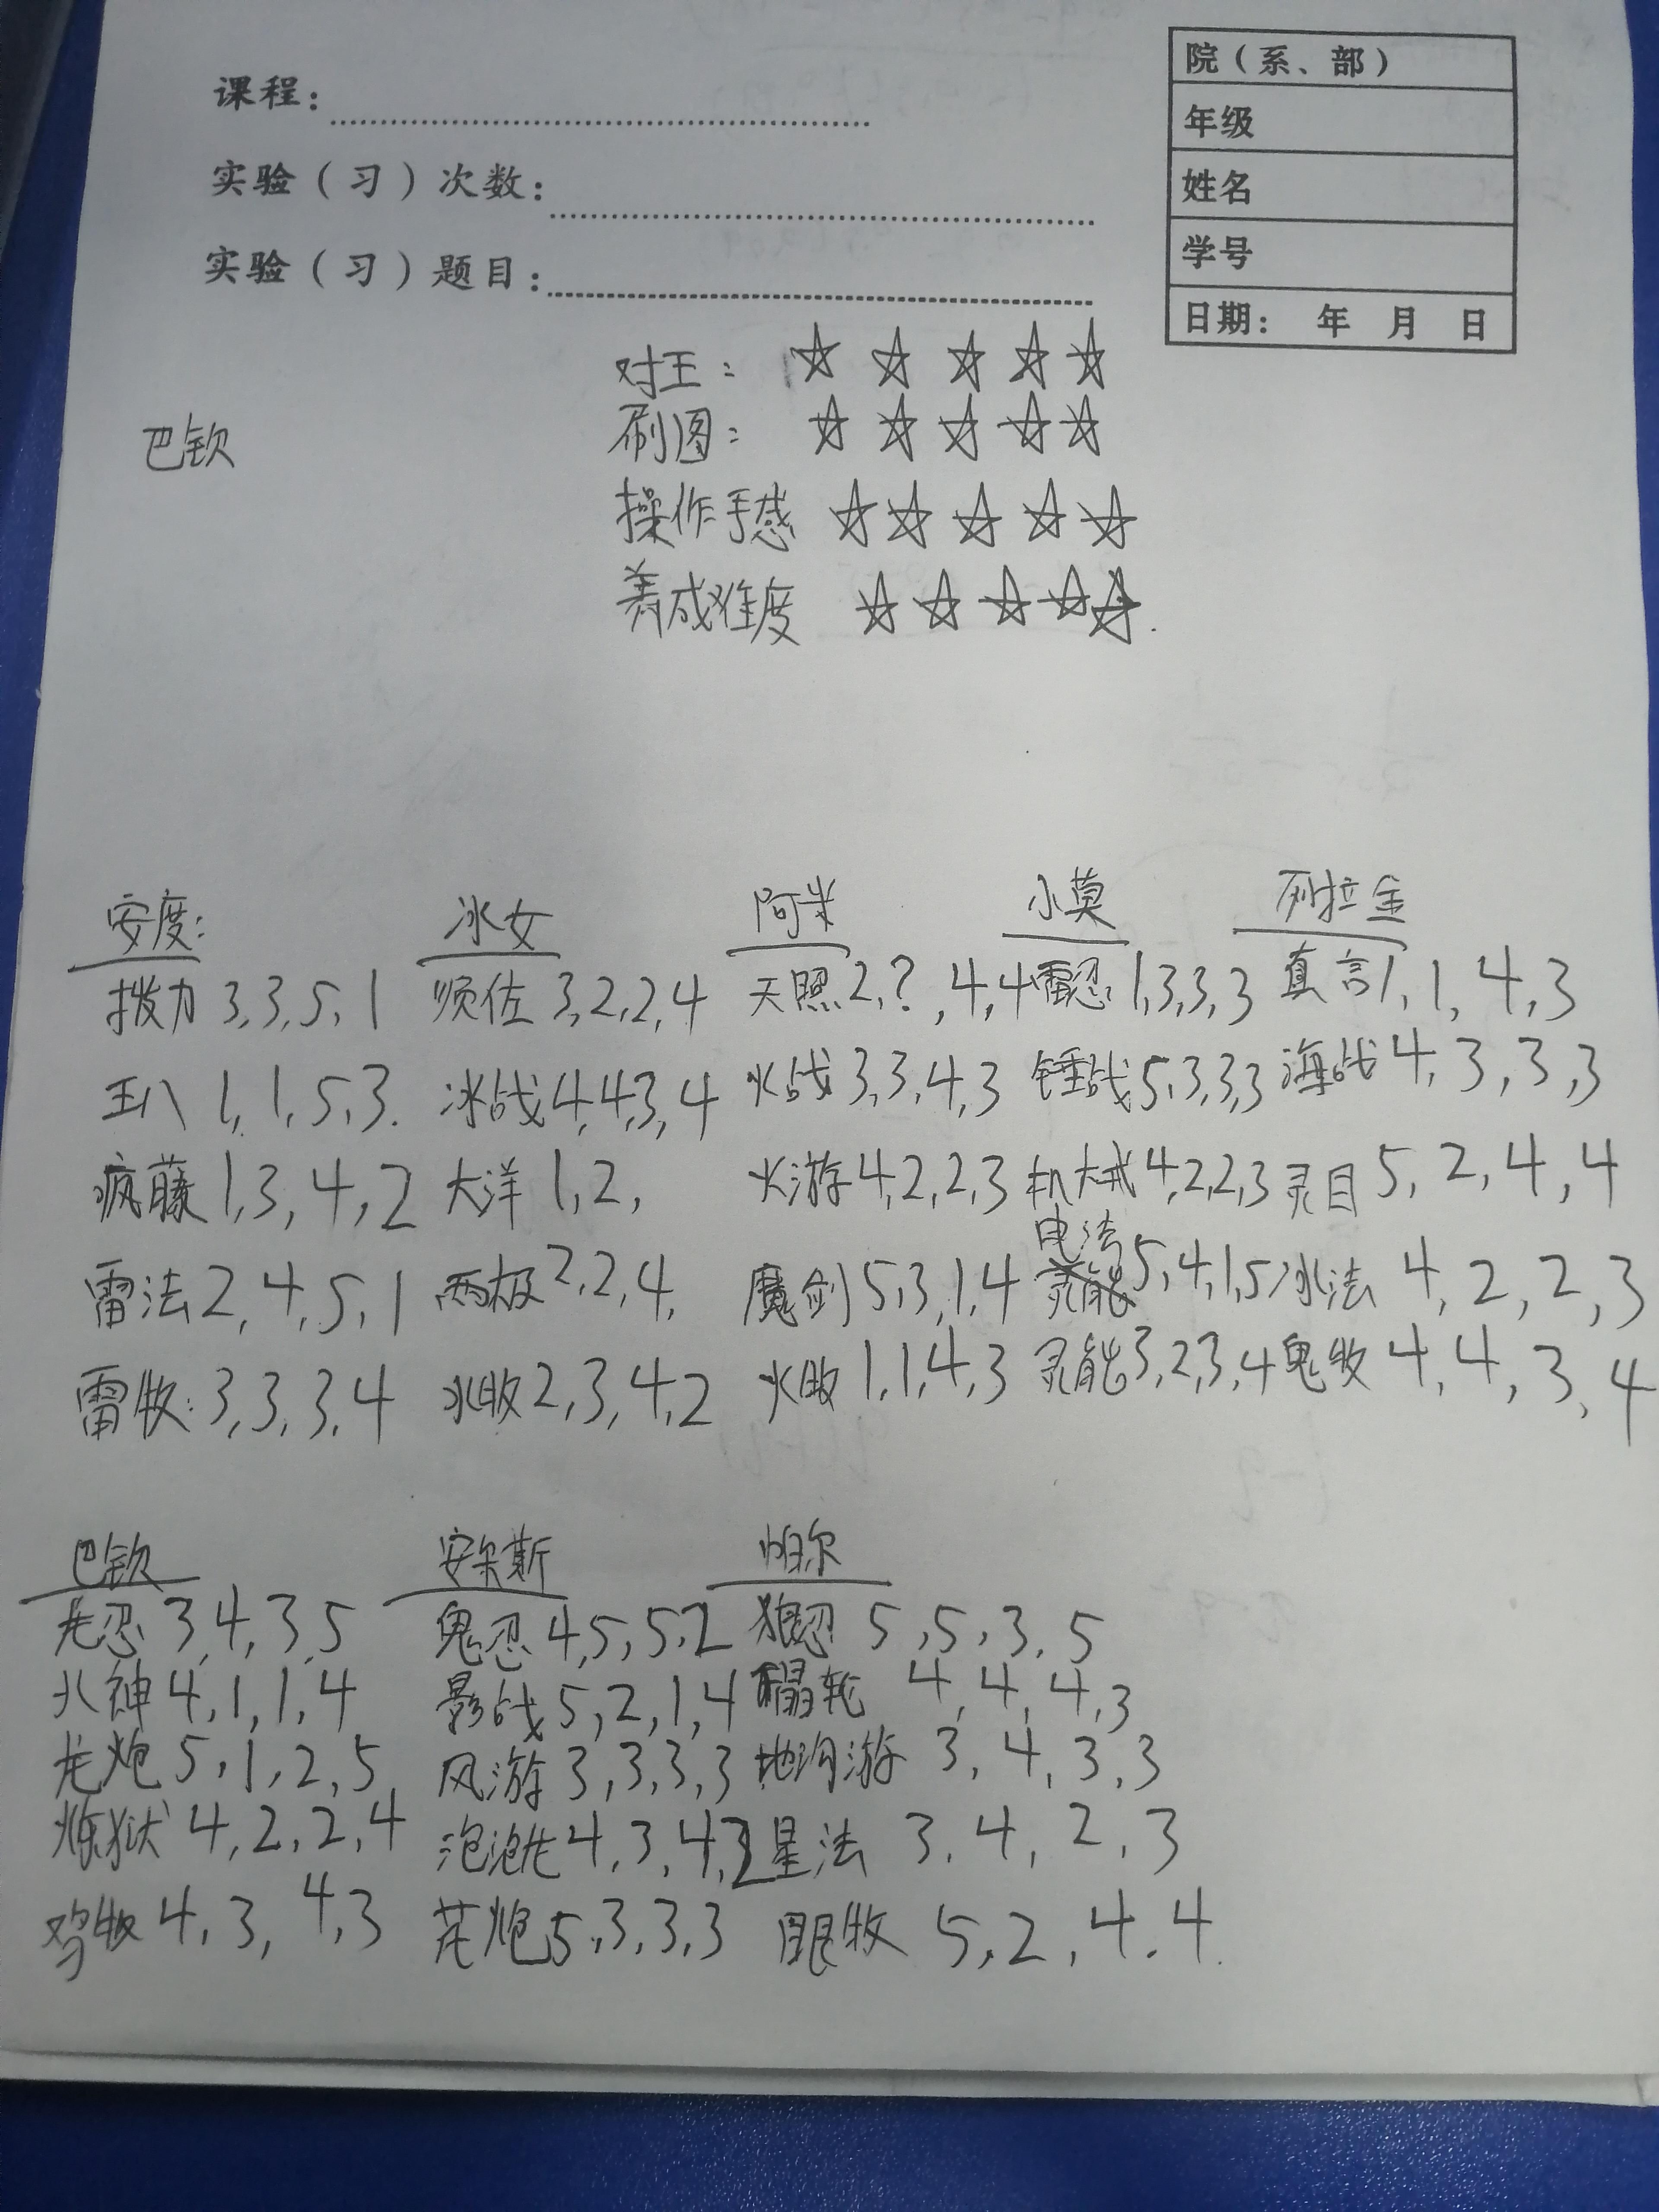 课程：
实验（习）次数：
实验（习）题目：
院（系、部）
年级
姓名
学号
日期： 年 月 日
巴钦
对王：☆☆☆☆☆
刷图：☆☆☆☆☆
操作手感 ☆☆☆☆☆
养成难度 ☆☆☆☆☆
安度： 冰女 阿米 小莫 列拉金
拨力 3,3,5,1 顺位 3,2,2,4 天照 2,?,4,4 雷忍 1,3,3,3 真言 1,1,4,3
王八 1,1,5,3. 冰战 4,4,3,4 火战 3,3,4,3 锤战 5,3,3,3 海战 4,3,3,3
疯藤 1,3,4,2 大洋 1,2, 火游 4,2,2,3 机大戒 4,2,2,3 灵目 5,2,4,4
雷法 2,4,5,1 两极 2,2,4, 魔剑 5,3,1,4 电法 5,4,1,5 冰法 4,2,2,3
雷牧：3,3,3,4 水牧 2,3,4,2 火牧 1,1,4,3 灵能 3,2,3,4 鬼牧 4,4,3,4
巴钦 安尔斯 帕尔
龙忍 3,4,3,5 鬼忍 4,5,5,2 狼忍 5,5,3,5
火神 4,1,1,4 影战 5,2,1,4 轮 4,4,4,3
龙炮 5,1,2,5 风游 3,3,3,3 地沟游 3,4,3,3
炼狱 4,2,2,4 泡泡龙 4,3,4, 星法 3,4,2,3
鸡牧 4,3,4,3 花炮 5,3,3,3 眼牧 5,2,4,4.